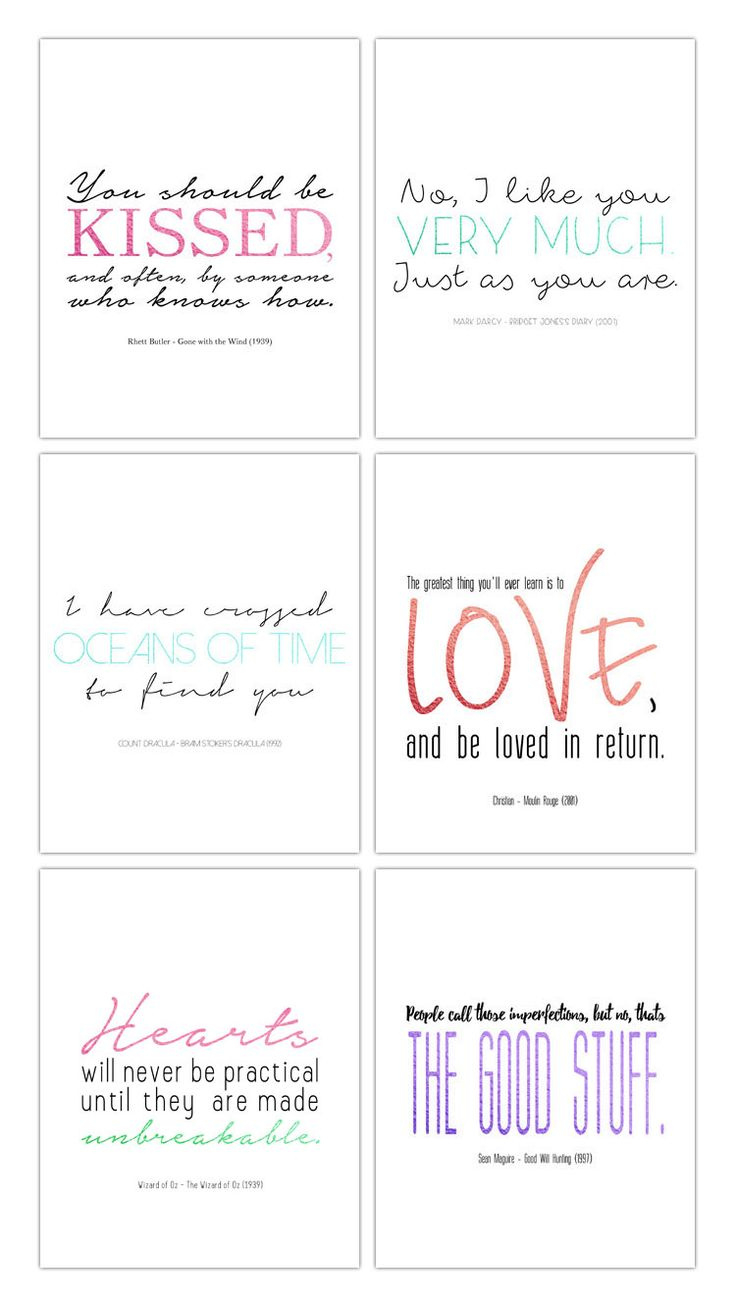 You should be
KISSED,
and often, by someone
who knows how.
Rhett Butler - Gone with the Wind (1939)
No, I like you
VERY MUCH.
Just as you are.
MARK DARCY - BRIDGET JONES'S DIARY (2001)
I have crossed
OCEANS OF TIME
to find you
COUNT DRACULA - BRAM STOKER'S DRACULA (1992)
The greatest thing you'll ever learn is to
LOVE,
and be loved in return.
Christian - Moulin Rouge (2001)
Hearts
will never be practical
until they are made
unbreakable.
Wizard of Oz - The Wizard of Oz (1939)
People call those imperfections, but no, thats
THE GOOD STUFF.
Sean Maguire - Good Will Hunting (1997)